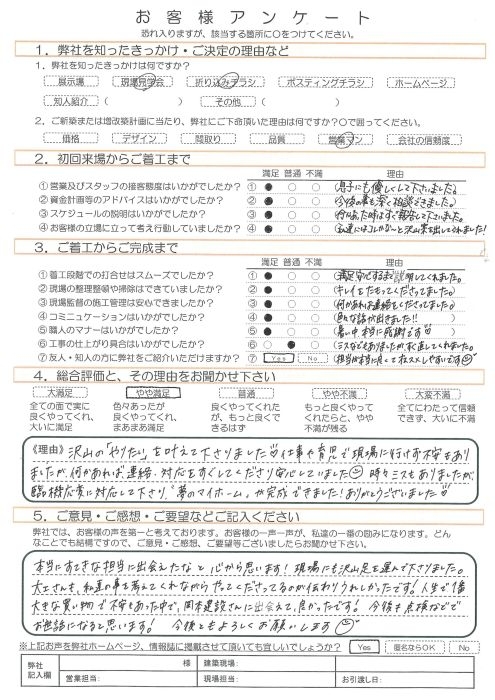 お客様アンケート
恐れ入りますが、該当する箇所に〇をつけてください。
1．弊社を知ったきっかけ・ご決定の理由など
1．弊社を知ったきっかけは何ですか？
展示場 現場見学会 折り込みチラシ ポスティングチラシ ホームページ
知人紹介（ ） その他（ ）
2．ご新築または増改築計画に当たり、弊社にご下命頂いた理由は何ですか？〇で囲ってください。
価格 デザイン 間取り 品質 営業マン 会社の信頼度
2．初回来場からご着工まで
満足 普通 不満 理由
①営業及びスタッフの接客態度はいかがでしたか？ ① ● ○ ○ （息子にも優しくして下さいました。
②資金計画等のアドバイスはいかがでしたか？ ② ● ○ ○ （今後の事も深く相談できました。
③スケジュールの説明はいかがでしたか？ ③ ● ○ ○
④お客様の立場に立って考え行動していましたか？ ④ ● ○ ○
3．ご着工からご完成まで
満足 普通 不満 理由
①着工段階での打合せはスムーズでしたか？ ① ● ○ ○ （満足安心するまで説明してくれました。
②現場の整理整頓や掃除はできていましたか？ ② ● ○ ○ （キレイをたもってくださってました。
③現場監督の施工管理は安心できましたか？ ③ ● ○ ○ （何かあれば連絡くださってました。
④コミュニケーションはいかがでしたか？ ④ ● ○ ○ （色々な話が出きました!!
⑤職人のマナーはいかがでしたか？ ⑤ ● ○ ○ （暑い中本当に感謝です
⑥工事の仕上がり具合はいかがでしたか？ ⑥ ○ ● ○ （ミスなどもありましたが、すぐ直してくれました。
⑦友人・知人の方に弊社をご紹介いただけますか？ ⑦ Yes No （担当が本当に良くてオススメしやすいです
4．総合評価と、その理由をお聞かせ下さい
大満足 やや満足 普通 やや不満 大変不満
全ての面で実に 色々あったが 良くやってくれた もっと良くやって 全てにわたって信頼
良くやってくれ、 良くやってくれ、 が、もっと良くで くれたら、やや できず、大いに不満
大いに満足 まあまあ満足 きるはず 不満が残る
《理由》沢山の「やりたい」を叶えて下さりました♡仕事や育児で現場に行けず不安もあり
ましたが、何かあれば連絡・対応をすぐしてくださり安心していました 時々ミスもありましたが
臨機応変に対応して下さり、"夢のマイホーム"が完成できました！ありがとうございました♡
5．ご意見・ご感想・ご要望などご記入ください
弊社では、お客様の声を第一と考えております。お客様の一声一声が、私達の一番の励みになります。どん
なことでも結構ですので、ご意見・ご感想、ご要望等ございましたらお聞かせ下さい。
本当にすてきな担当に出会えたなと心から思います！現場にも沢山足を運んで下さりました。
大工さんも、私達の事を考えてくれながらやってくださってるのが伝わりうれしかったです。人生で1番
大きな買い物で不安もあった中で、岡本建設さんに出会えて、良かったです！ 今後も点検などで
お世話になると思います！ 今後ともよろしくお願いします
※上記お声を弊社ホームページ、情報誌に掲載させて頂いても宜しいでしょうか？ Yes 匿名ならOK No
弊社記入欄 様 建築現場：
営業担当： 現場担当： お引渡し日：